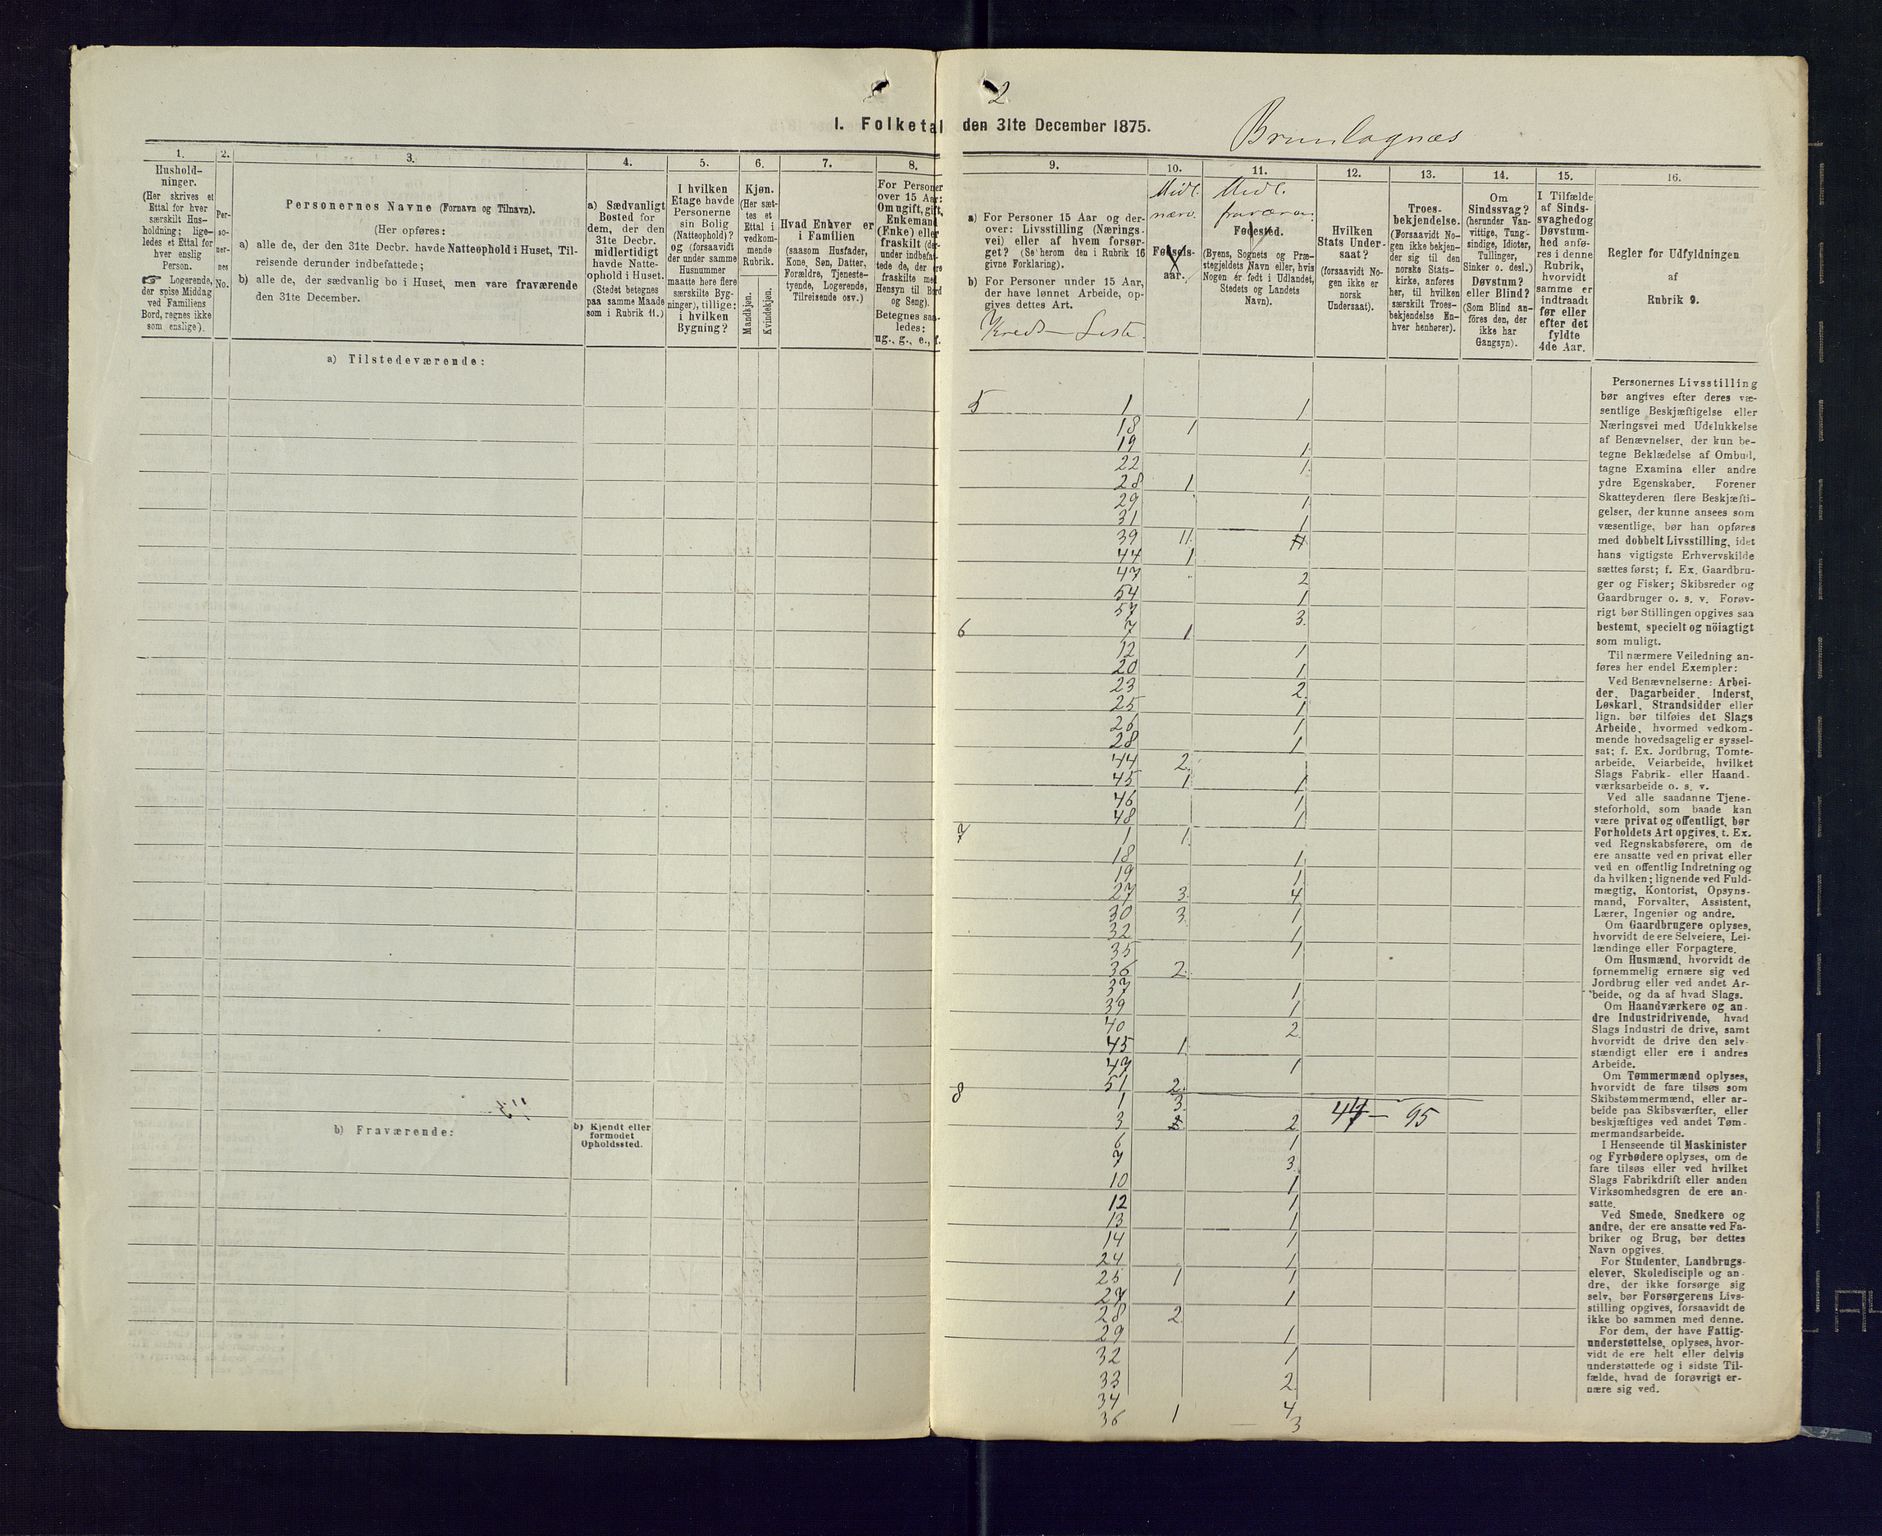 2
I. Folketal den 31te December 1875.
Brunlagnæs
1.
Hushold-
ninger.
(Her skrives et
Ettal for hver
særskilt Hus-
holdning; lige-
ledes et Ettal for
hver enslig
Person.
☞ Logerende,
der spise Middag
ved Familiens
Bord, regnes ikke
som enslige).
2.
Per-
so-
ner-
nes
No.
3.
Personernes Navne (Fornavn og Tilnavn).
(Her opføres:
a) alle de, der den 31te Decbr. havde Natteophold i Huset, Til-
reisende derunder indbefattede;
b) alle de, der sædvanlig bo i Huset, men vare fraværende
den 31te December.
4.
a) Sædvanligt
Bosted for
dem, der den
31te Decbr.
midlertidigt
havde Natte-
ophold i Huset.
(Stedet betegnes
paa samme Maade
som i Rubrik 11.)
5.
I hvilken
Etage havde
Personerne
sin Bolig
(Natteophold)?
og (forsaavidt
der under samme
Husnummer
maatte høre flere
særskilte Byg-
ninger), tillige:
i hvilken
Bygning?
6.
Kjøn.
(Her sæt-
tes et
Ettal i
vedkom-
mende
Rubrik.
Mandkjøn.
Kvindekjøn.
7.
Hvad Enhver er
i Familien
(saasom Husfader,
Kone, Søn, Datter,
Forældre, Tjeneste-
tyende, Logerende,
Tilreisende osv.)
8.
For Personer
over 15 Aar:
Om ugift, gift,
Enkemand
(Enke) eller
fraskilt (der-
under indbefat-
tede de, der ere
fraskilte med
Hensyn til Bord
og Seng).
Betegnes saa-
ledes:
ug., g., e., f.
9.
a) For Personer 15 Aar og der-
over: Livsstilling (Nærings-
vei) eller af hvem forsør-
get? (Se herom den i Rubrik 16
givne Forklaring).
b) For Personer under 15 Aar,
der have lønnet Arbeide, op-
gives dettes Art.
Kreds- Liste.
10.
Midl.
nærv.
Fødsels-
aar.
11.
Midl.
fraværen.
Fødested.
(Byens, Sognets og Præ-
stegjeldets Navn eller, hvis
Nogen er født i Udlandet,
Stedets og Landets
Navn).
12.
Hvilken
Stats Under-
saat?
(forsaavidt No-
gen ikke er
norsk
Undersaat).
13.
Troes-
bekjendelse.
(Forsaavidt No-
gen ikke bekjen-
der sig til den
norske Stats-
kirke, anføres
her, til hvilken
særskilt Troes-
bekjendelse En-
hver henhører).
14.
Om
Sindssvag?
(herunder Van-
vittige, Tung-
sindige, Idioter,
Tullinger,
Sinker o. desl.)
Døvstum?
eller Blind?
(Som Blind an-
føres den, der
ikke har
Gangsyn).
15.
I Tilfælde
af Sinds-
svaghed og
Døvstum-
hed anfø-
res i denne
Rubrik,
hvorvidt
samme er
indtraadt
før eller
efter det
fyldte
4de Aar.
16.
Regler for Udfyldningen
af
Rubrik 9.
a) Tilstedeværende:
5 1 1
18 1
19 1
22 1
28 1
29 1
31 1
39 11 11
44 1
47 2
54 1
57 3
6 7 1
12 1
20 1
23 2
25 1
26 1
28 1
44 2
45 1 1
46 1
48 1
7 1 1
18 1
19 1
27 3 4
30 3 1
32 1
35 1
36 2
37 1
39 1
40 2
45 1
47 1
51 2
8 1 3
3 2 44 — 95
6 1
7 3
10 1
12 1
13 1
14 1
24 1
25 1 1
27 1
28 2
29 1
32 1
33 2
34 4
36 1 3
b) Fraværende:
b) Kjendt eller
formodet
Opholdssted.
Personernes Livsstilling
bør angives efter deres væ-
sentlige Beskjæftigelse eller
Næringsvei med Udelukkelse
af Benævnelser, der kun be-
tegne Beklædelse af Ombud,
tagne Examina eller andre
ydre Egenskaber. Forener
Skatteyderen flere Beskjæfti-
gelser, der kunne ansees som
væsentlige, bør han opføres
med dobbelt Livsstilling, idet
hans vigtigste Erhvervskilde
sættes først; f. Ex. Gaardbru-
ger og Fisker; Skibsreder og
Gaardbruger o. s. v. Forøv-
rigt bør Stillingen opgives saa
bestemt, specielt og nöiagtigt
som muligt.
Til nærmere Veiledning an-
føres her endel Exempler:
Ved Benævnelserne: Arbei-
der, Dagarbeider, Inderst,
Løskarl, Strandsidder eller
lign. bør tilføies det Slags
Arbeide, hvormed vedkom-
mende hovedsagelig er syssel-
sat; f. Ex. Jordbrug, Tomte-
arbeide, Veiarbeide, hvilket
Slags Fabrik- eller Haand-
værksarbeide o. s. v.
Ved alle saadanne Tjene-
steforhold, som baade kan
være privat og offentligt, bør
Forholdets Art opgives, t. Ex.
ved Regnskabsførere, om de
ere ansatte ved en privat eller
ved en offentlig Indretning og
da hvilken; lignende ved Fuld-
mægtig, Kontorist, Opsyns-
mand, Forvalter, Assistent,
Lærer, Ingeniør og andre.
Om Gaardbrugere oplyses,
hvorvidt de ere Selveiere, Lei-
lændinge eller Forpagtere.
Om Husmænd, hvorvidt de
førnemmelig ernære sig ved
Jordbrug eller ved andet Ar-
beide, og da af hvad Slags.
Om Haandværkere og an-
dre Industridrivende, hvad
Slags Industri de drive, samt
hvorvidt de drive den selv-
stændigt eller ere i andres
Arbeide.
Om Tømmermænd oplyses,
hvorvidt de fare tilsøs som
Skibstømmermænd, eller ar-
beide paa Skibsværfter, eller
beskjæftiges ved andet Tøm-
mermandsarbeide.
I Henseende til Maskinister
og Fyrbødere oplyses, om de
fare tilsøs eller ved hvilket
Slags Fabrikdrift eller anden
Virksomhedsgren de ere an-
satte.
Ved Smede, Snedkere og
andre, der ere ansatte ved Fa-
briker og Brug, bør dettes
Navn opgives.
For Studenter, Landbrugs-
elever, Skoledisciple og an-
dre, der ikke forsørge sig
selv, bør Forsørgerens Livs-
stilling opgives, forsaavidt de
ikke bo sammen med denne.
For dem, der have Fattig-
understøttelse, oplyses, hvor-
vidt de ere helt eller delvis
understøttede og i sidste Til-
fælde, hvad de forøvrigt er-
nære sig ved.